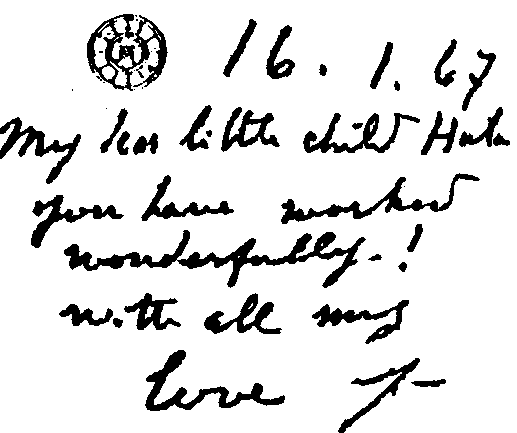 16.1.67
My dear little child Huta
you have worked
wonderfully - !
with all my
love